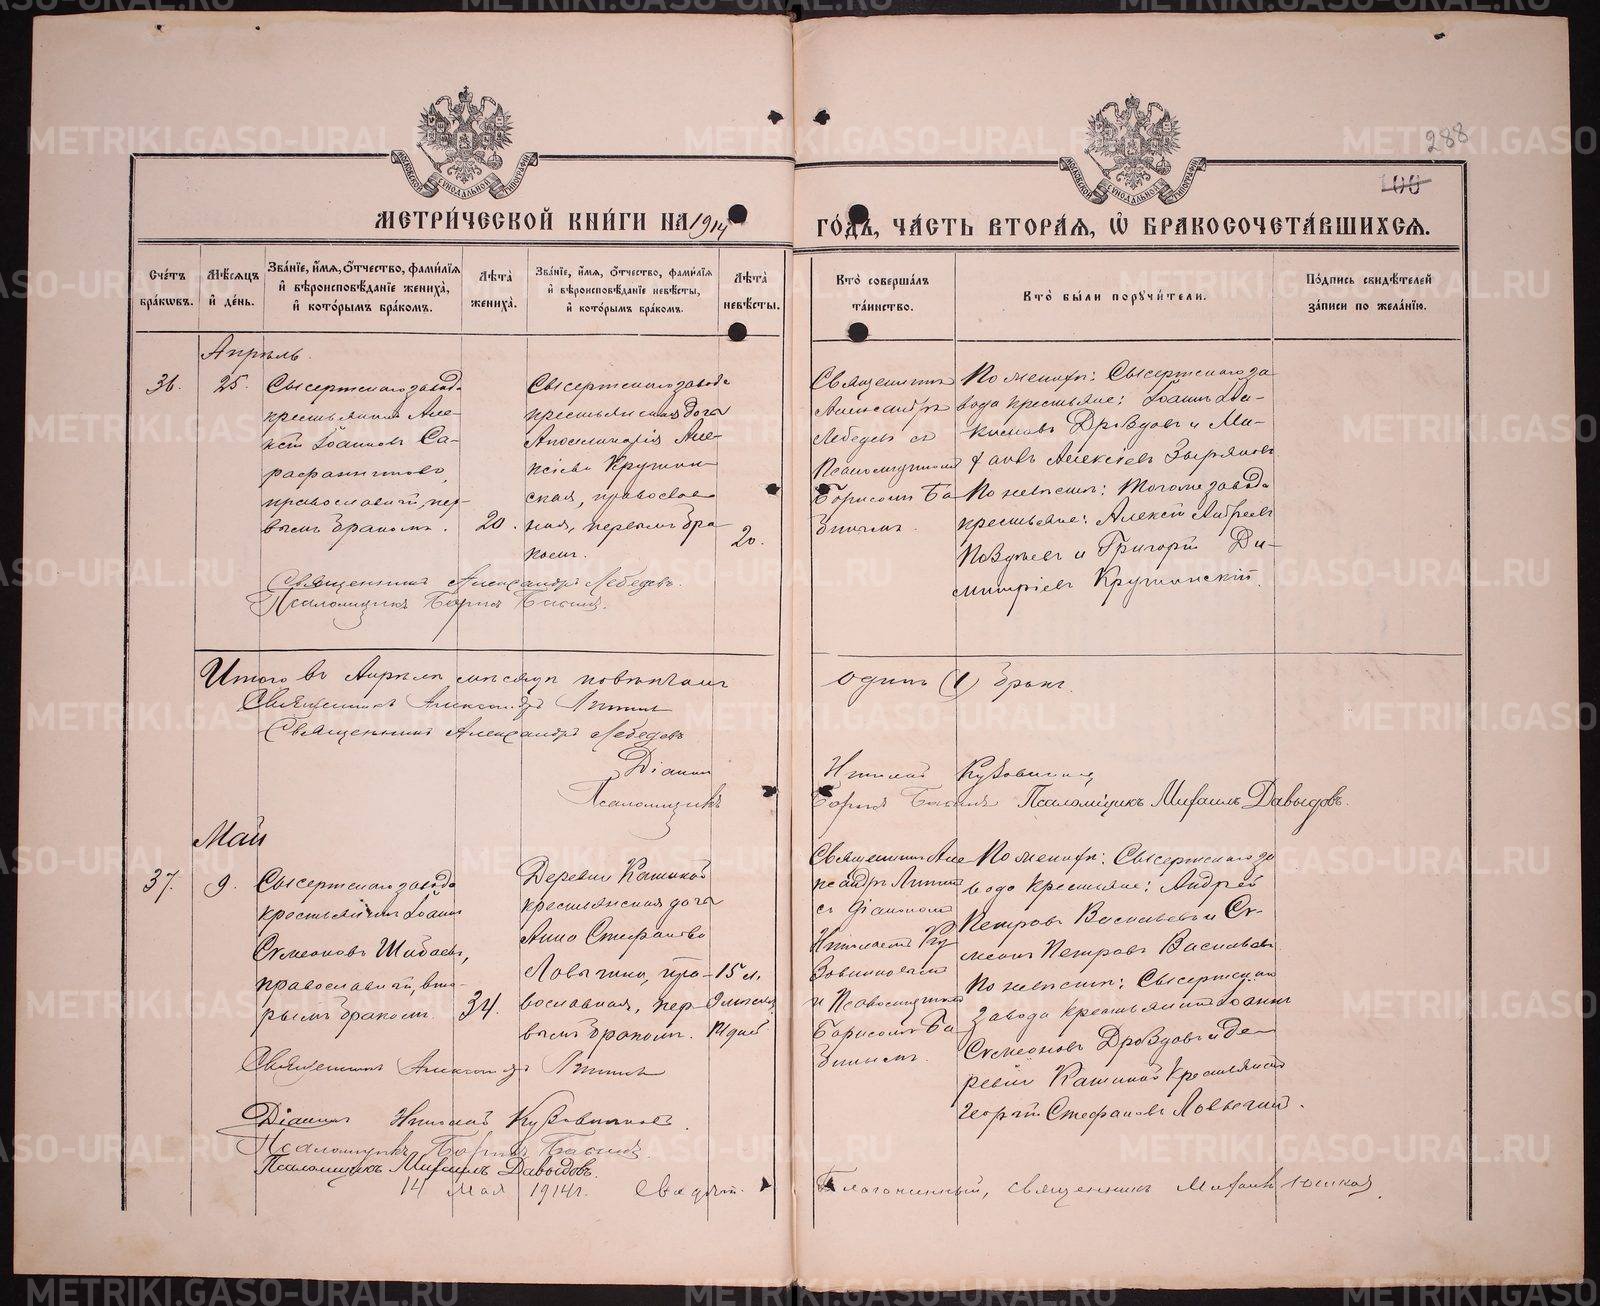 288
100
МЕТРИЧЕСКОЙ КНИГИ НА 1914 ГОДЪ, ЧАСТЬ ВТОРАЯ, Ѡ БРАКОСОЧЕТАВШИХСЯ.
МОСКОВСКОЙ СУНОДАЛЬНОЙ ТИПОГРАФІИ
МОСКОВСКОЙ СУНОДАЛЬНОЙ ТИПОГРАФІИ
Счетъ браковъ.
Мѣсяцъ и день.
Званіе, имя, отчество, фамилія и вѣроисповѣданіе жениха, и которымъ бракомъ.
Лѣта жениха.
Званіе, имя, отчество, фамилія и вѣроисповѣданіе невѣсты, и которымъ бракомъ.
Лѣта невѣсты.
Кто совершалъ таинство.
Кто были поручители.
Подпись свидѣтелей записи по желанію.
Апрѣль.
36.
25.
Сысертскаго завода
крестьянинъ Але-
ксій Іоанновъ Са-
рафанниковъ,
православный, пер-
вымъ бракомъ.
20.
Сысертскаго завода
крестьянская дочь
Апполинарія Але-
ксіева Кружин-
ская, православ-
ная, первымъ бра-
комъ.
20.
Священникъ
Александръ
Лебедевъ съ
Псаломщикомъ
Борисомъ Ба-
бинымъ.
По женихѣ: Сысертскаго за-
вода крестьяне: Іоаннъ
Дроздовъ и Ми-
Алексіевъ Зыряновъ
По невѣстѣ: тогоже завода
крестьяне: Алексій Андреевъ
и Григорій Ди-
митріевъ Кружинскій.
Священникъ Александръ Лебедевъ.
Псаломщикъ Борисъ Бабинъ.
Итого въ Апрѣлѣ мѣсяцѣ повѣнчанъ одинъ (1) бракъ.
Священникъ Александръ
Священникъ Александръ Лебедевъ
Діаконъ Николай Кузовниковъ
Псаломщикъ Борисъ Бабинъ Псаломщикъ Михаилъ Давыдовъ.
Май
37.
9.
Сысертскаго завода
крестьянинъ Іоаннъ
Симеоновъ Шибаевъ,
православный, вто-
рымъ бракомъ.
34.
Деревни Кашиной
крестьянская дочь
Анна Стефанова
Ловыгина, пра-
вославная, пер-
вымъ бракомъ.
15 л.
дней
Священникъ Але-
ксандръ
съ діакономъ
Николаемъ Ку-
зовниковымъ
и Псаломщикомъ
Борисомъ Ба-
бинымъ.
По женихѣ: Сысертскаго за-
вода крестьяне: Андрей
Петровъ Васильевъ и Си-
меонъ Петровъ Васильевъ
По невѣстѣ: Сысертскаго
завода крестьянинъ Іоаннъ
Симеоновъ Дроздовъ и де-
ревни Кашиной крестьянинъ
Георгій Стефановъ Ловыгинъ.
Священникъ Александръ
Діаконъ Николай Кузовниковъ.
Псаломщикъ Борисъ Бабинъ.
Псаломщикъ Михаилъ Давыдовъ.
14 мая 1914 г. Благочинный, священникъ Михаилъ
METRIKI.GASO-URAL.RU